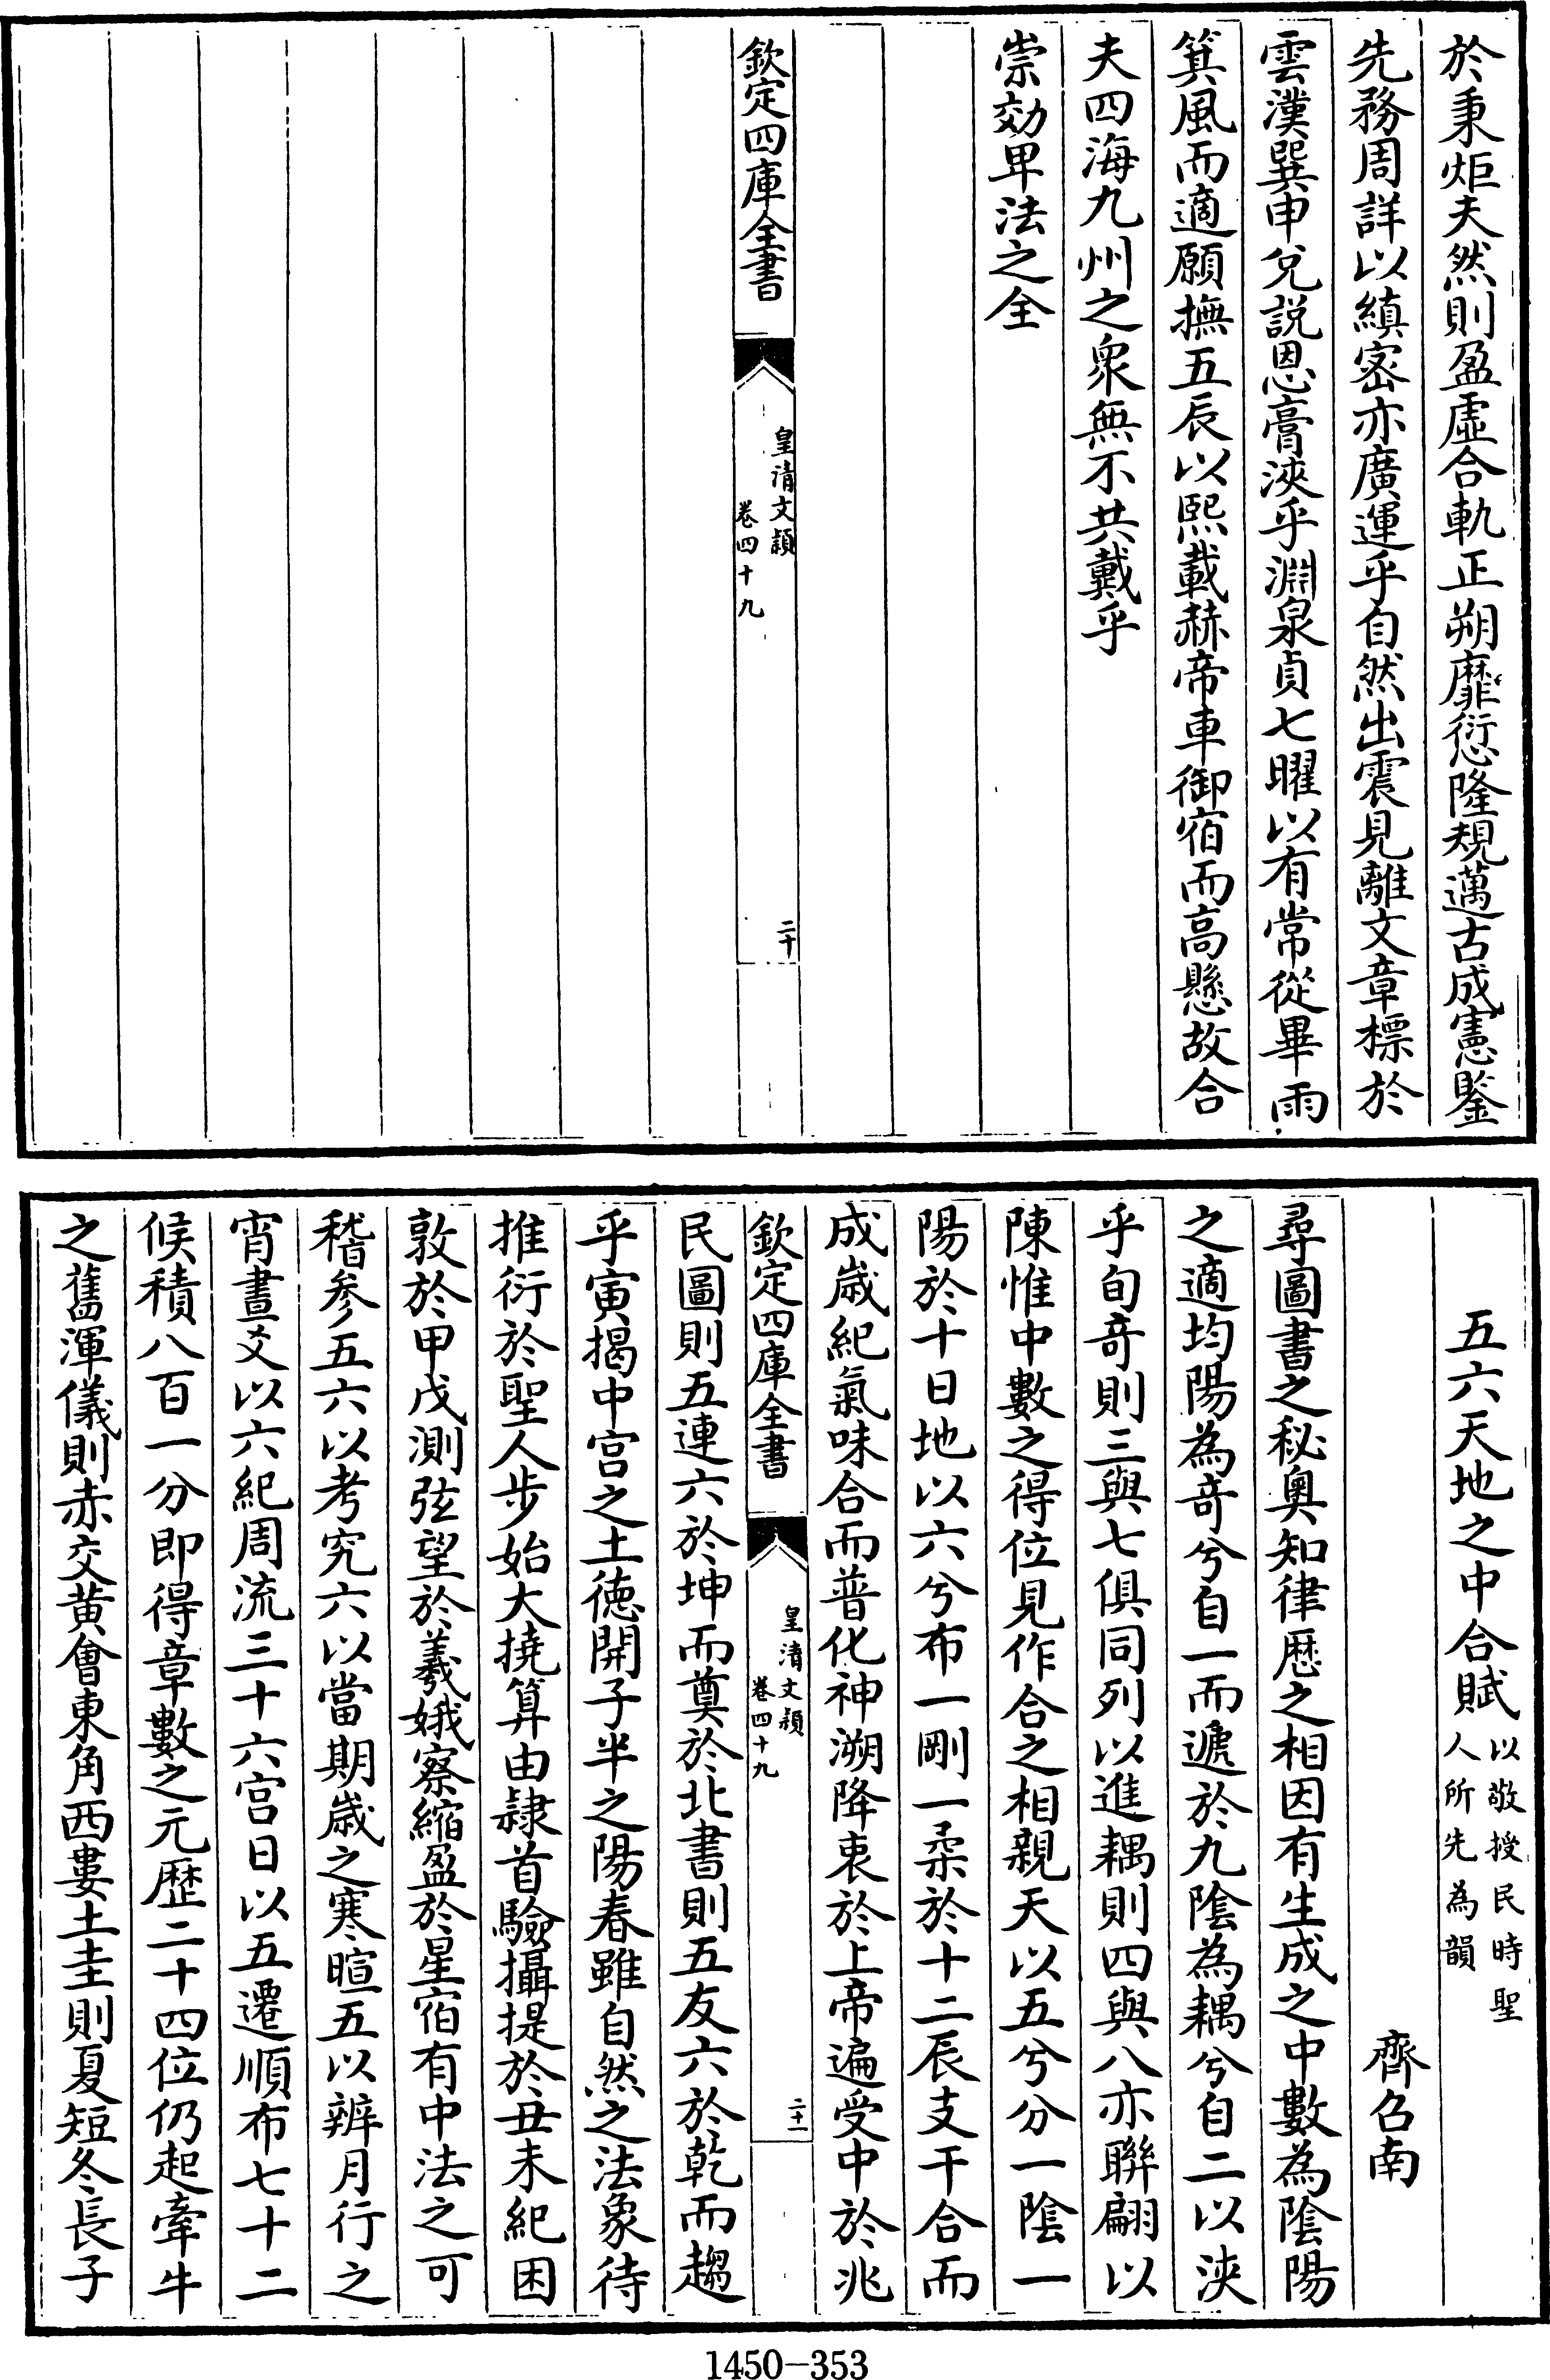 於秉炬夫然則盈虛合軌正朔靡愆隆規邁古成憲鑒
先務周詳以縝密亦廣運乎自然出震見離文章標於
雲漢巽申兌說恩膏浹乎淵泉貞七曜以有常從畢雨
箕風而適願撫五辰以熙載赫帝車御宿而高懸故合
夫四海九州之衆無不共戴乎
崇効卑法之全
欽定四庫全書
皇清文穎
卷四十九
二十
五六天地之中合賦以敬授民時聖
人所先為韻
齊召南
尋圖書之秘奧知律歴之相因有生成之中數為陰陽
之適均陽為奇兮自一而遞於九陰為耦兮自二以浹
乎旬奇則三與七俱同列以進耦則四與八亦聯翩以
陳惟中數之得位見作合之相親天以五兮分一陰一
陽於十日地以六兮布一剛一柔於十二辰支干合而
成歲紀氣味合而普化神溯降衷於上帝遍受中於兆
欽定四庫全書
皇清文穎
卷四十九
二十一
民圖則五連六於坤而奠於北書則五友六於乾而趨
乎寅揭中宫之土德開子半之陽春雖自然之法象待
推衍於聖人步始大撓算由隷首驗攝提於丑未紀困
敦於甲戊測弦望於羲娥察縮盈於星宿有中法之可
稽参五六以考究六以當期歲之寒暄五以辨月行之
宵晝爻以六紀周流三十六宫日以五遷順布七十二
候積八百一分即得章數之元歷二十四位仍起牽牛
之舊渾儀則赤交黄會東角西婁土圭則夏短冬長子
1450-353